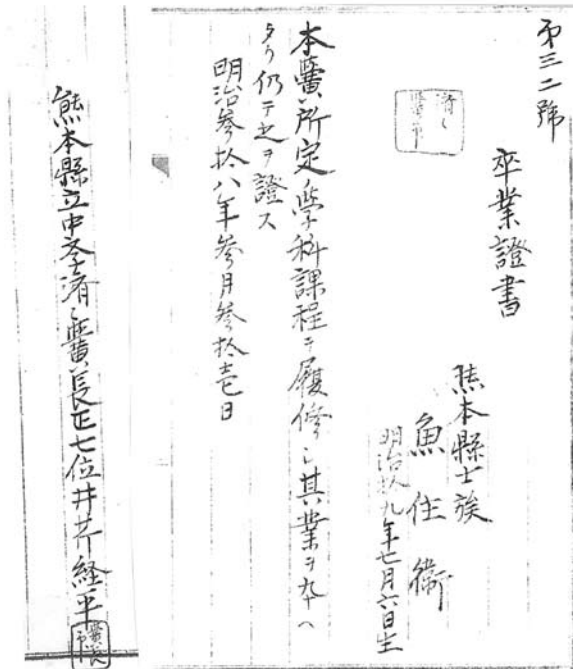 第三二號
卒業證書
熊本縣士族
魚住衛
明治拾九年七月六日生
本黌所定ノ學科課程ヲ履修シ其業ヲ卆ヘ
タリ仍テ之ヲ證ス
明治參拾八年參月參拾壱日
熊本縣立中學濟〻黌長正七位井芹経平